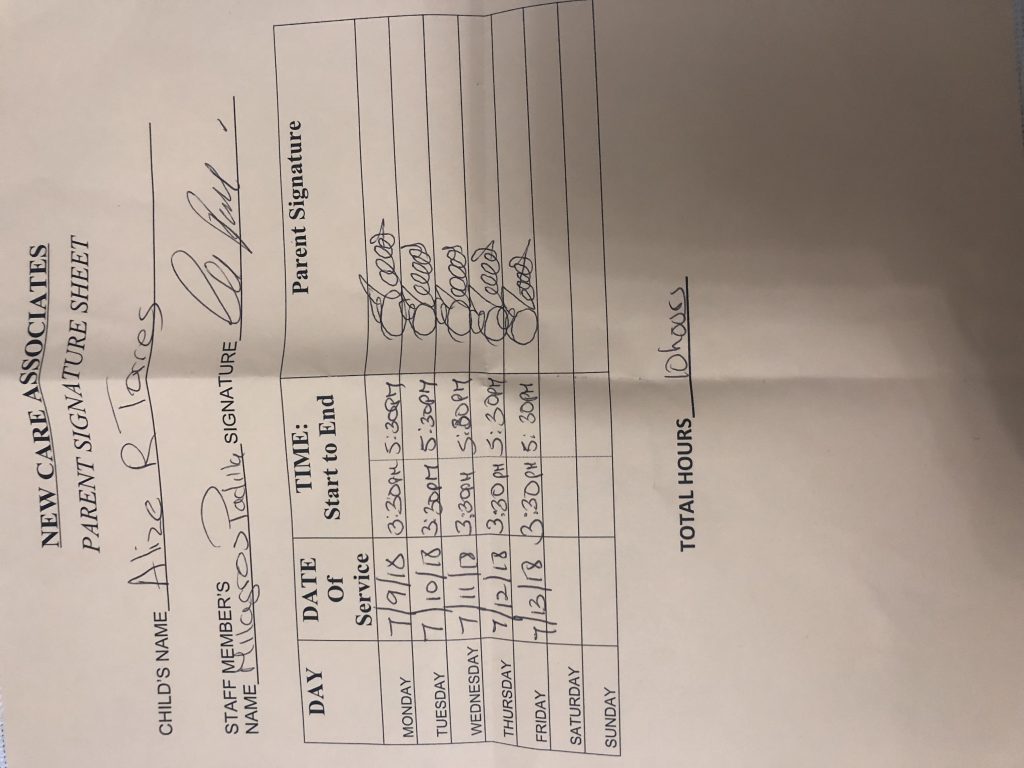 NEW CARE ASSOCIATES
PARENT SIGNATURE SHEET
CHILD'S NAME Alize R Torres
STAFF MEMBER'S
NAME Milagros Padilla SIGNATURE
DAY DATE Of Service TIME: Start to End Parent Signature
MONDAY 7/9/18 3:30PM 5:30PM
TUESDAY 7/10/18 3:30PM 5:30PM
WEDNESDAY 7/11/18 3:30PM 5:30PM
THURSDAY 7/12/18 3:30PM 5:30PM
FRIDAY 7/13/18 3:30PM 5:30PM
SATURDAY
SUNDAY
TOTAL HOURS 10hours